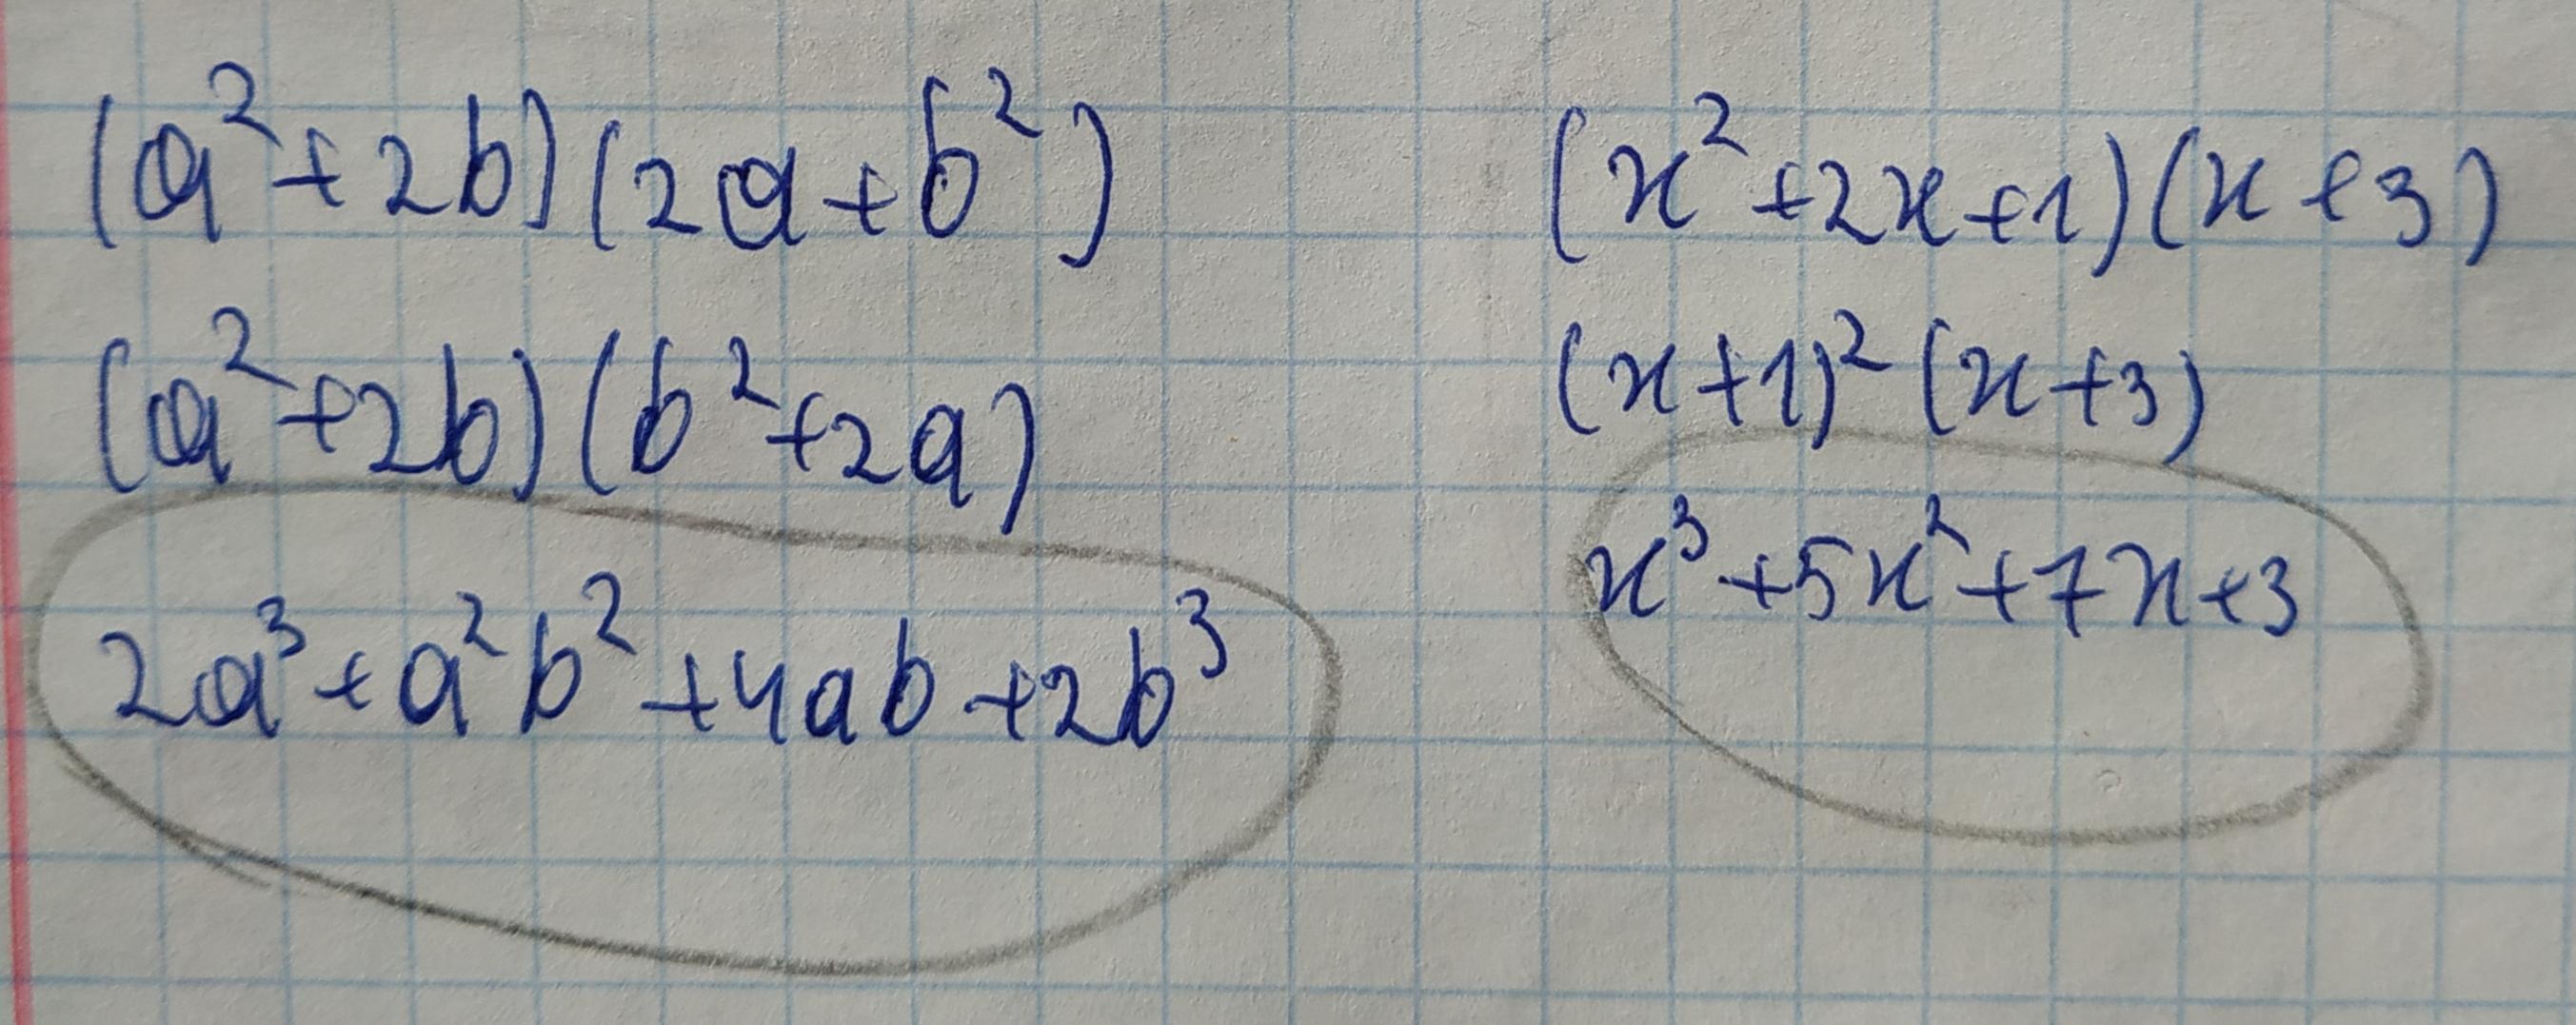 (a²+2b)(2a+b²)
(a²+2b)(b²+2a)
2a³+a²b²+4ab+2b³
(x²+2x+1)(x+3)
(x+1)²(x+3)
x³+5x²+7x+3